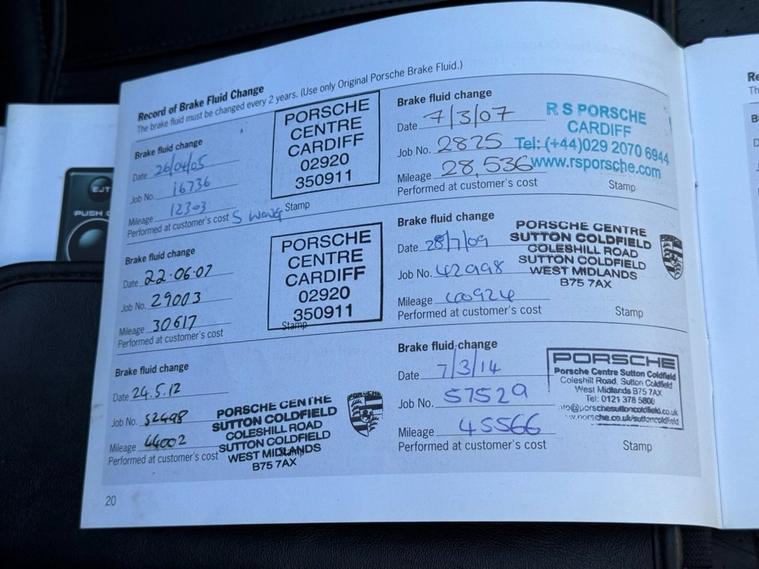 Record of Brake Fluid Change
The brake fluid must be changed every 2 years. (Use only Original Porsche Brake Fluid.)
Brake fluid change
Date 26/04/05
Job No. 16736
Mileage 12303
Performed at customer's cost
Stamp
PORSCHE
CENTRE
CARDIFF
02920
350911
Brake fluid change
Date 7/3/07
Job No. 2825
Mileage 28,536
Performed at customer's cost
Stamp
R S PORSCHE
CARDIFF
Tel: (+44)029 2070 6944
www.rsporsche.com
Brake fluid change
Date 22.06.07
Job No. 29003
Mileage 30617
Performed at customer's cost
Stamp
PORSCHE
CENTRE
CARDIFF
02920
350911
Brake fluid change
Date 28/7/09
Job No. 42998
Mileage
Performed at customer's cost
Stamp
PORSCHE CENTRE
SUTTON COLDFIELD
COLESHILL ROAD
SUTTON COLDFIELD
WEST MIDLANDS
B75 7AX
Brake fluid change
Date 24.5.12
Job No. 52498
Mileage 44002
Performed at customer's cost
Stamp
PORSCHE CENTRE
SUTTON COLDFIELD
COLESHILL ROAD
SUTTON COLDFIELD
WEST MIDLANDS
B75 7AX
Brake fluid change
Date 7/3/14
Job No. 57529
Mileage 45566
Performed at customer's cost
Stamp
PORSCHE
Porsche Centre Sutton Coldfield
Coleshill Road, Sutton Coldfield
West Midlands B75 7AX
Tel: 0121 378 5800
info@porschesuttoncoldfield.co.uk
www.porsche.co.uk/suttoncoldfield
20
EJT
PUSH